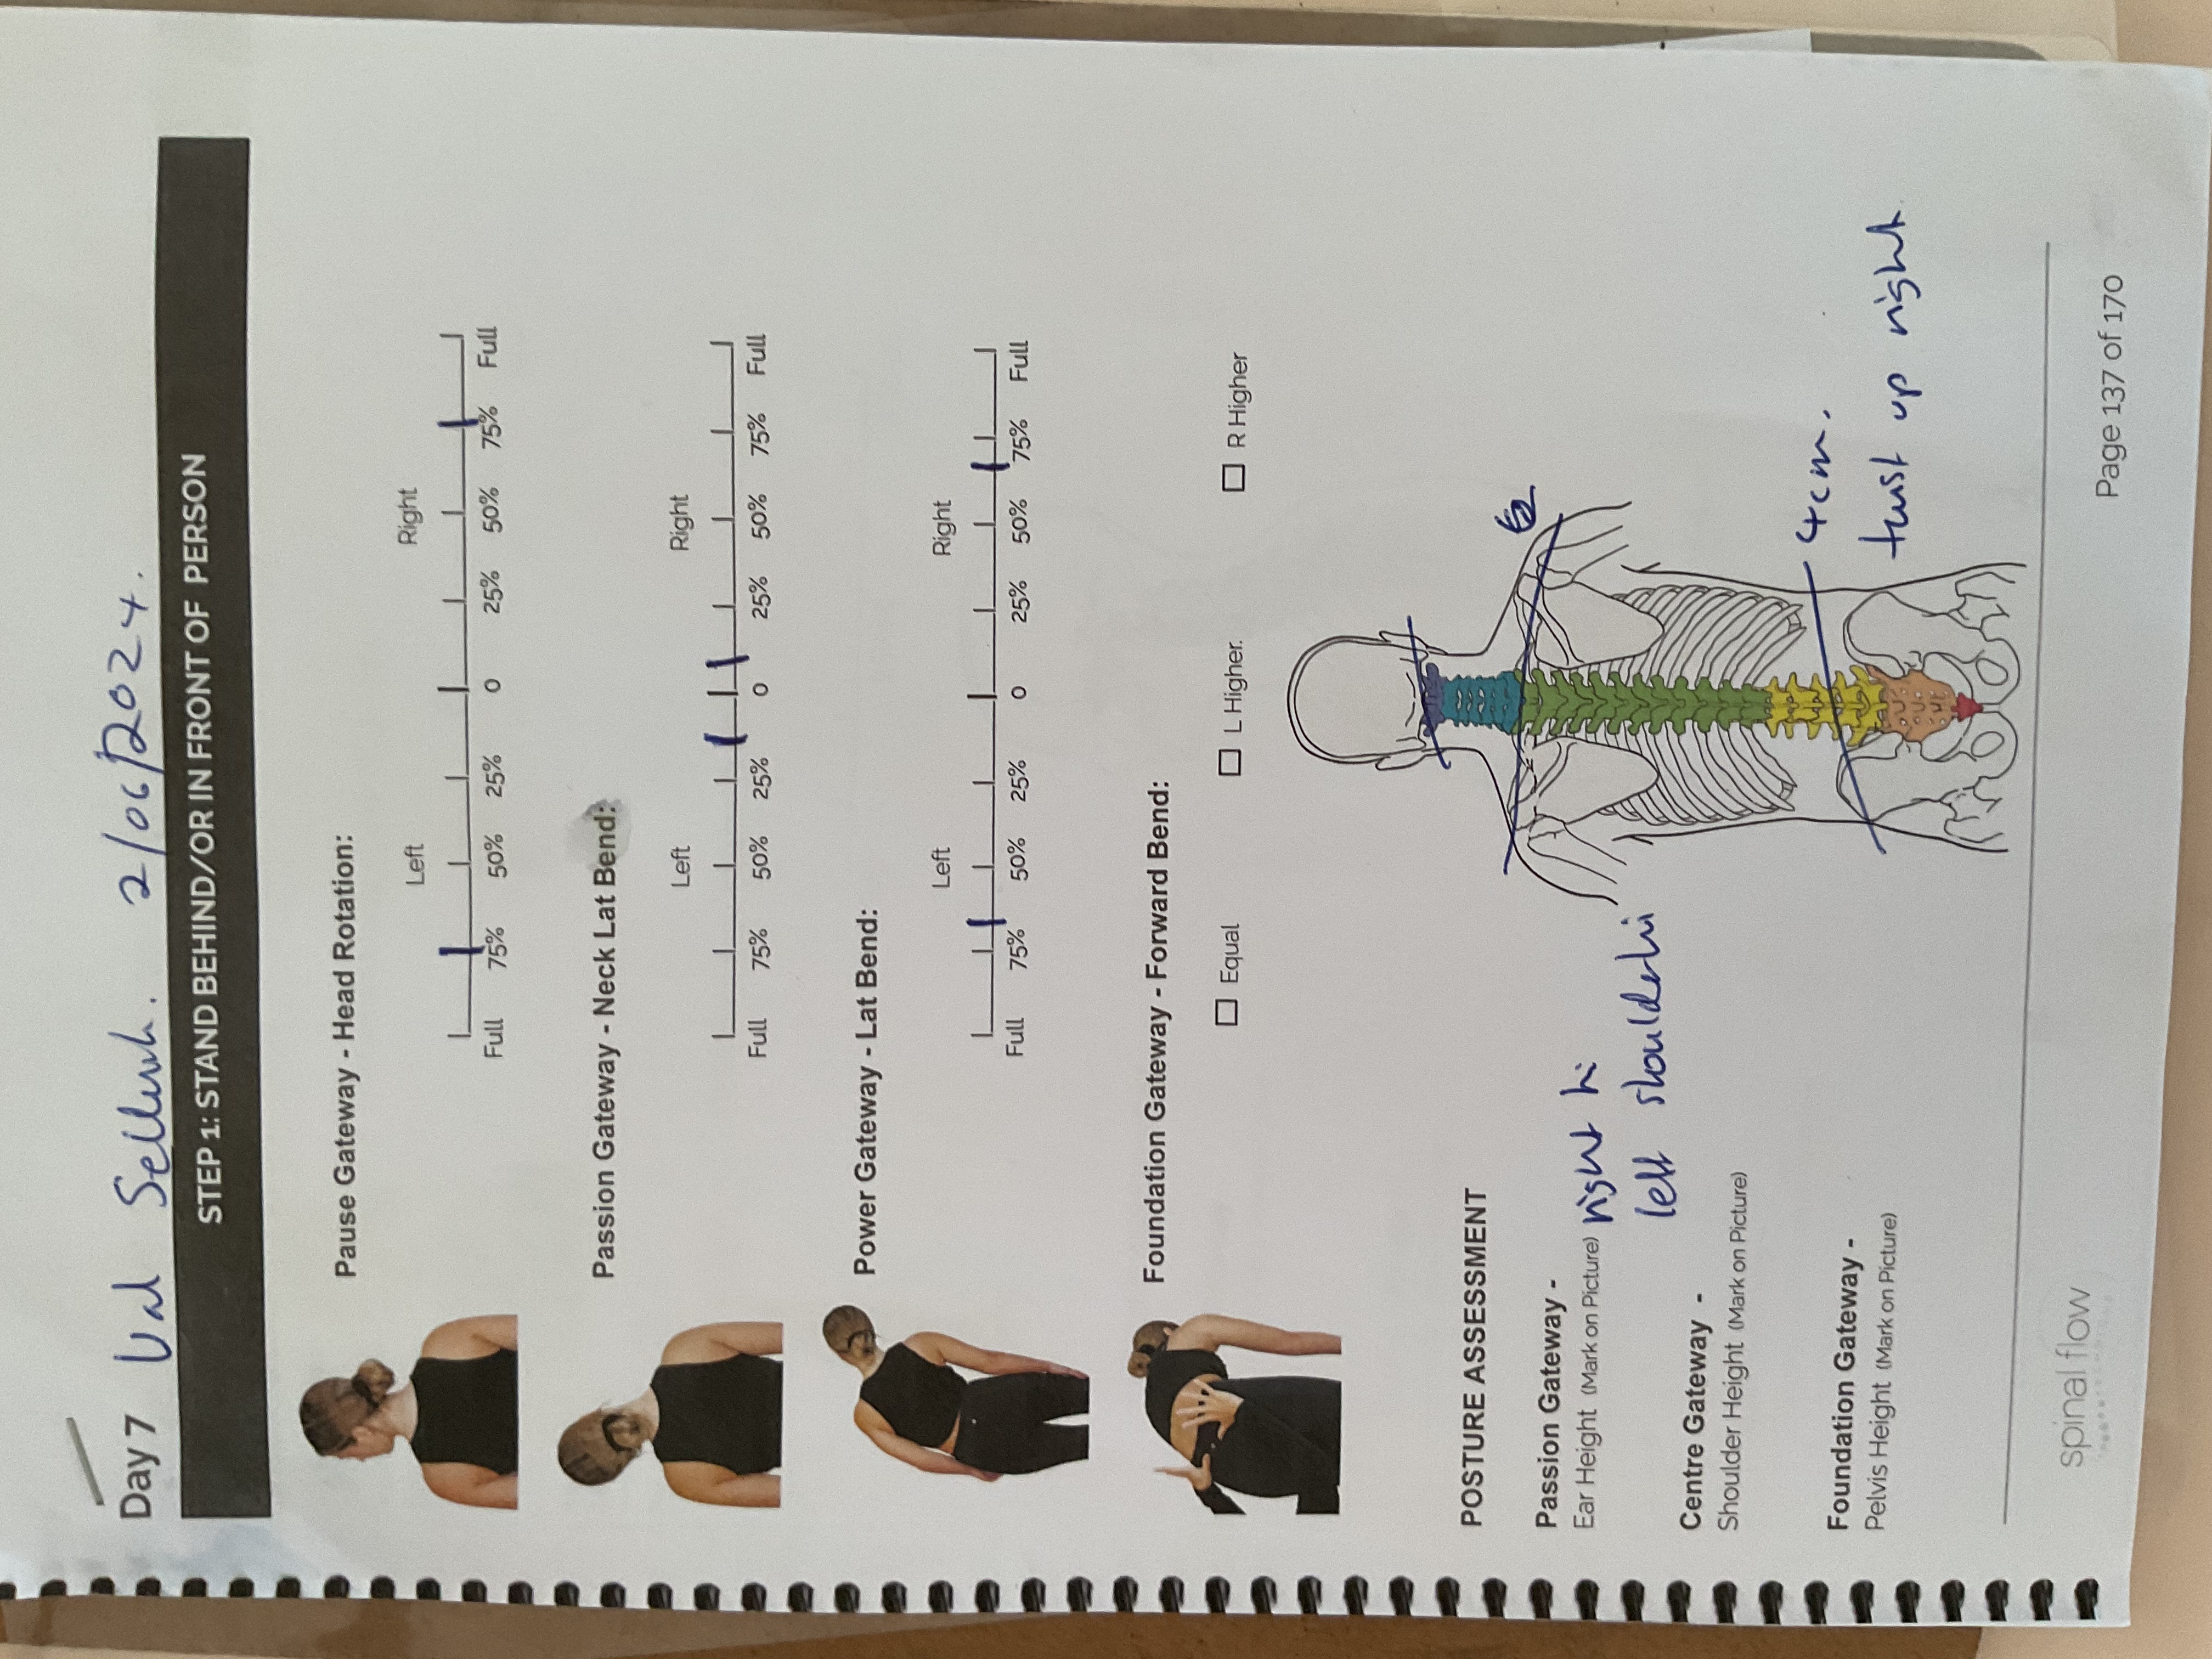 Day 7 Val 2/06/2024.
STEP 1: STAND BEHIND/OR IN FRONT OF PERSON
Pause Gateway - Head Rotation:
Left Right
Full 75% 50% 25% 0 25% 50% 75% Full
Passion Gateway - Neck Lat Bend:
Left Right
Full 75% 50% 25% 0 25% 50% 75% Full
Power Gateway - Lat Bend:
Left Right
Full 75% 50% 25% 0 25% 50% 75% Full
Foundation Gateway - Forward Bend:
Equal L Higher. R Higher
POSTURE ASSESSMENT
Passion Gateway -
Ear Height (Mark on Picture) right hi
left shoulder hi
Centre Gateway -
Shoulder Height (Mark on Picture)
4cm.
Foundation Gateway -
Pelvis Height (Mark on Picture)
twist up right
spinal flow
Page 137 of 170